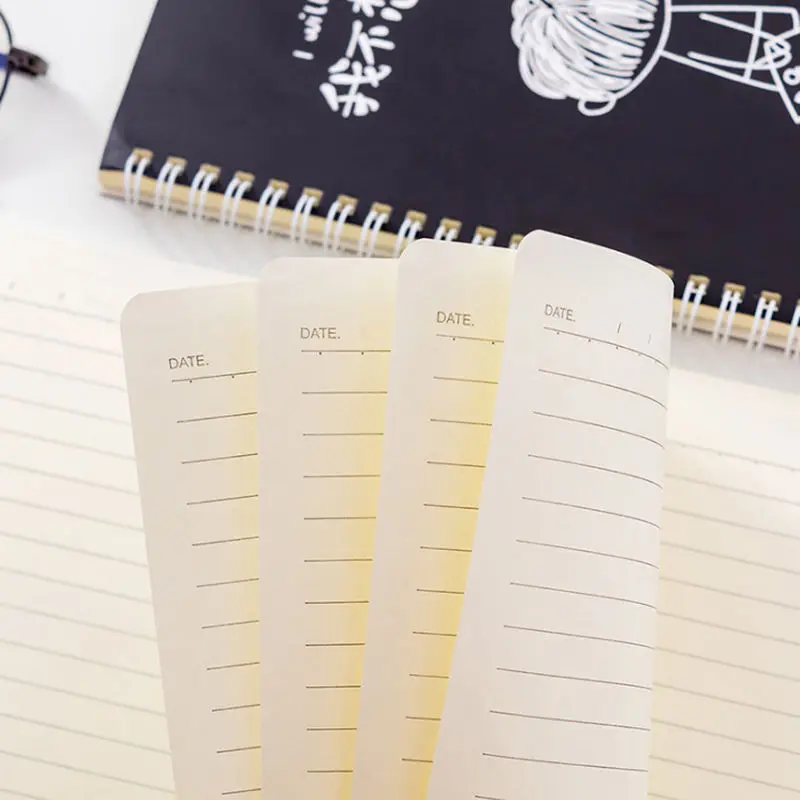 I will
我不想
DATE.
DATE.
DATE.
DATE. / /